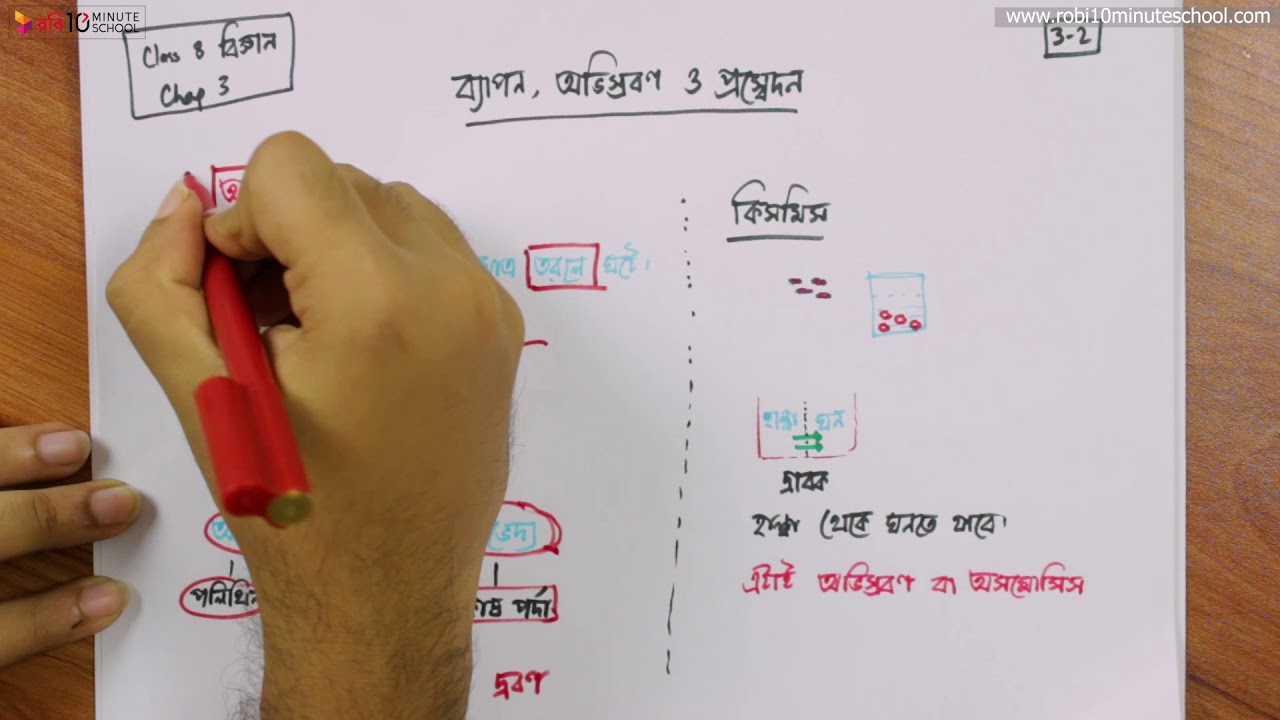 রবি 10 MINUTE SCHOOL
www.robi10minuteschool.com
Class 8 বিজ্ঞান
Chap 3
3-2
ব্যাপন, অভিস্রবণ ও প্রস্বেদন
তরলে ঘটে।
পর্দা
দ্রবণ
কিসমিস
হাল্কা ঘন
দ্রাবক
হাল্কা থেকে ঘনতে যাবে।
এটাই অভিস্রবণ বা অসমোসিস